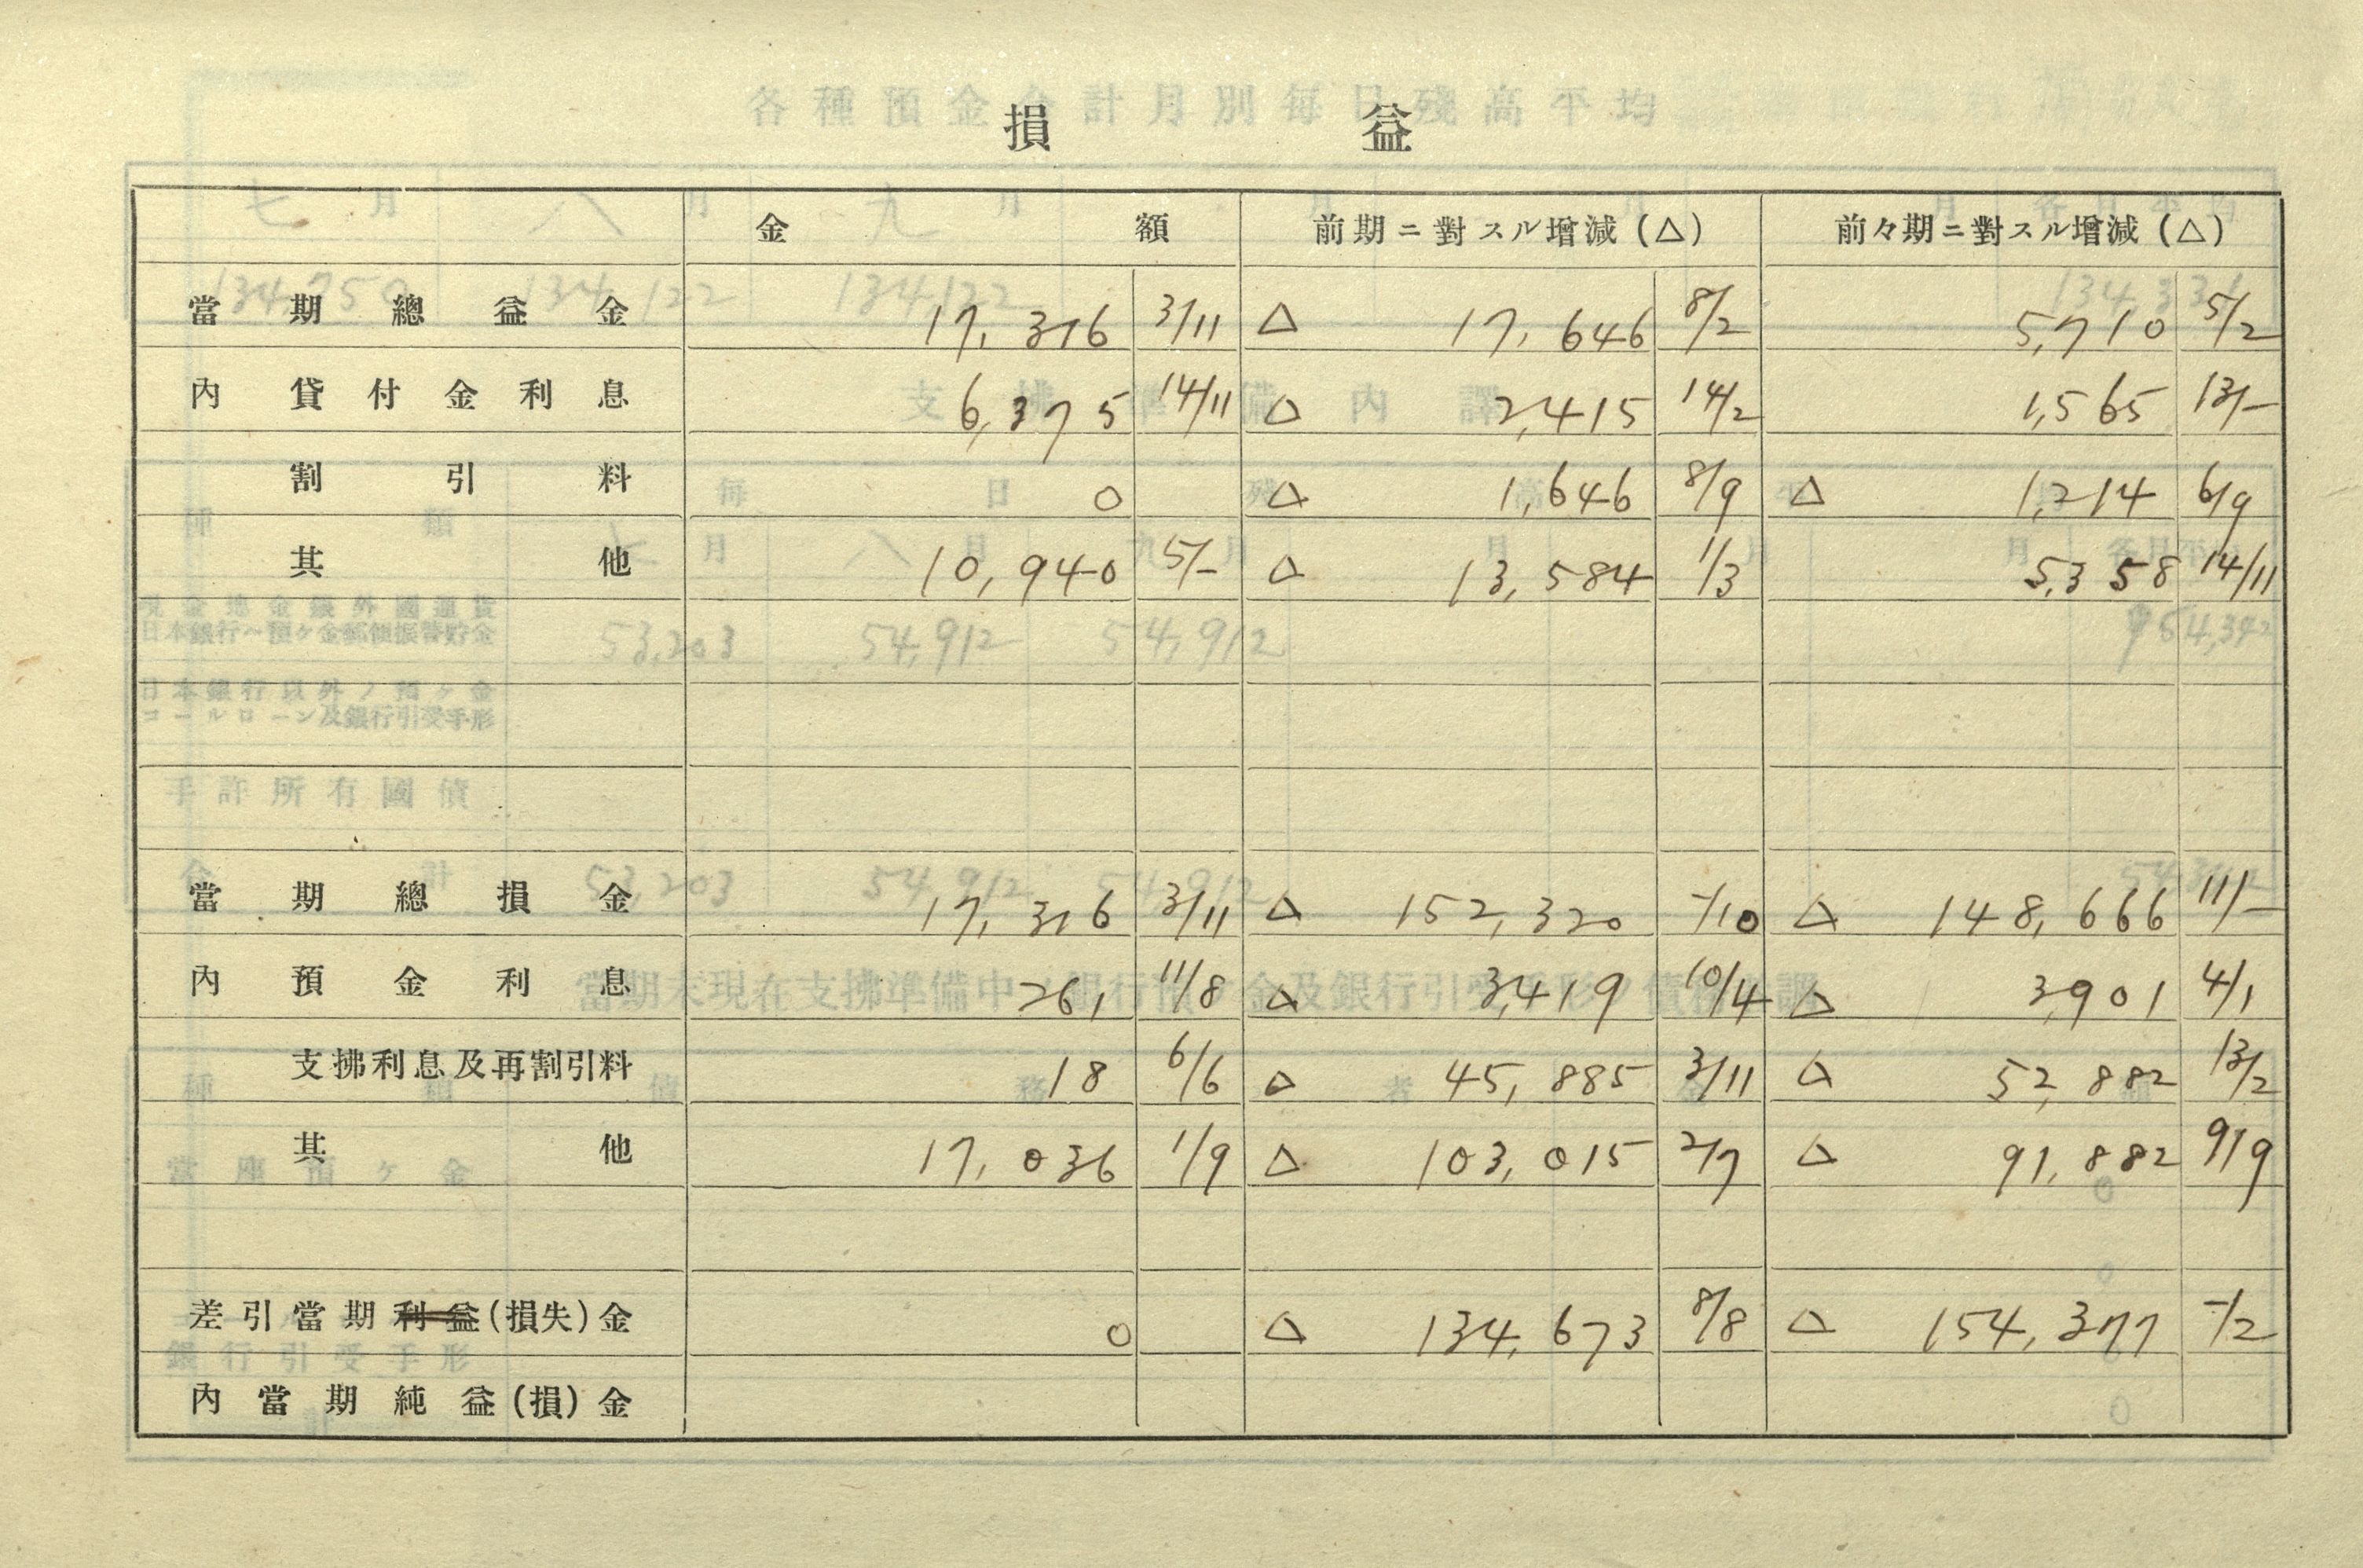 損益
金額 前期ニ對スル增減(△) 前々期ニ對スル增減(△)
當期總益金 17,316 3/11 △ 17,646 8/2 5,710 5/2
內 貸付金利息 6,375 14/11 △ 2,415 14/2 1,565 13/-
割引料 0 △ 1,646 8/9 △ 1,214 6/9
其他 10,940 5/- △ 13,584 1/3 5,358 14/11
當期總損金 17,316 3/11 △ 152,320 -/10 △ 148,666 11/-
內 預金利息 261 11/8 △ 3,419 10/4 △ 3,901 4/1
支拂利息及再割引料 18 6/6 △ 45,885 3/11 △ 52,882 13/2
其他 17,036 1/9 △ 103,015 2/7 △ 91,882 9/9
差引當期利益(損失)金 0 △ 134,673 8/8 △ 154,377 -/2
內當期純益(損)金